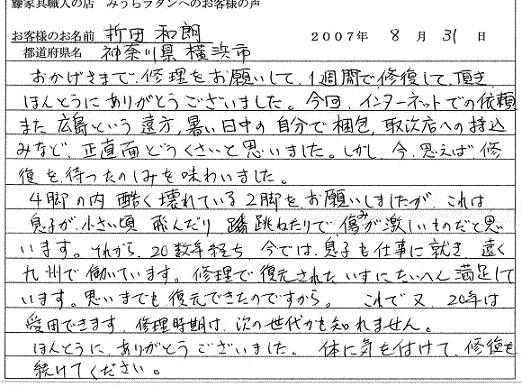 籐家具職人の店 みうらラタンへのお客様の声
お客様のお名前 折田 和朗 2007年 8月 31日
都道府県名 神奈川県横浜市
おかげさまで、修理をお願いして、1週間で修復して頂き
ほんとうにありがとうございました。今回、インターネットでの依頼
また広島という遠方、暑い日中の自分で梱包、取次店への持込
みなど、正直面どうくさいと思いました。しかし、今、思えば修
復を待ったのしみを味わいました。
4脚の内 酷く壊れている2脚をお願いしましたが、これは
息子が小さい頃 飛んだり 跳ねたりで、傷みが激しいものだと思
います。それから、20数年経ち 今では、息子も仕事に就き、遠く
九州で働いています。修理で復元されたいすにたいへん満足して
います。思いまでも復元できたのですから。これで又、20年は
愛用できます。修理時期は、次の世代かも知れません。
ほんとうに、ありがとうございました。体に気を付けて、修復を
続けてください。